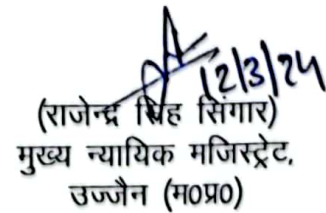 12/3/24
(राजेन्द्र सिंह सिंगार)
मुख्य न्यायिक मजिस्ट्रेट,
उज्जैन (म0प्र0)